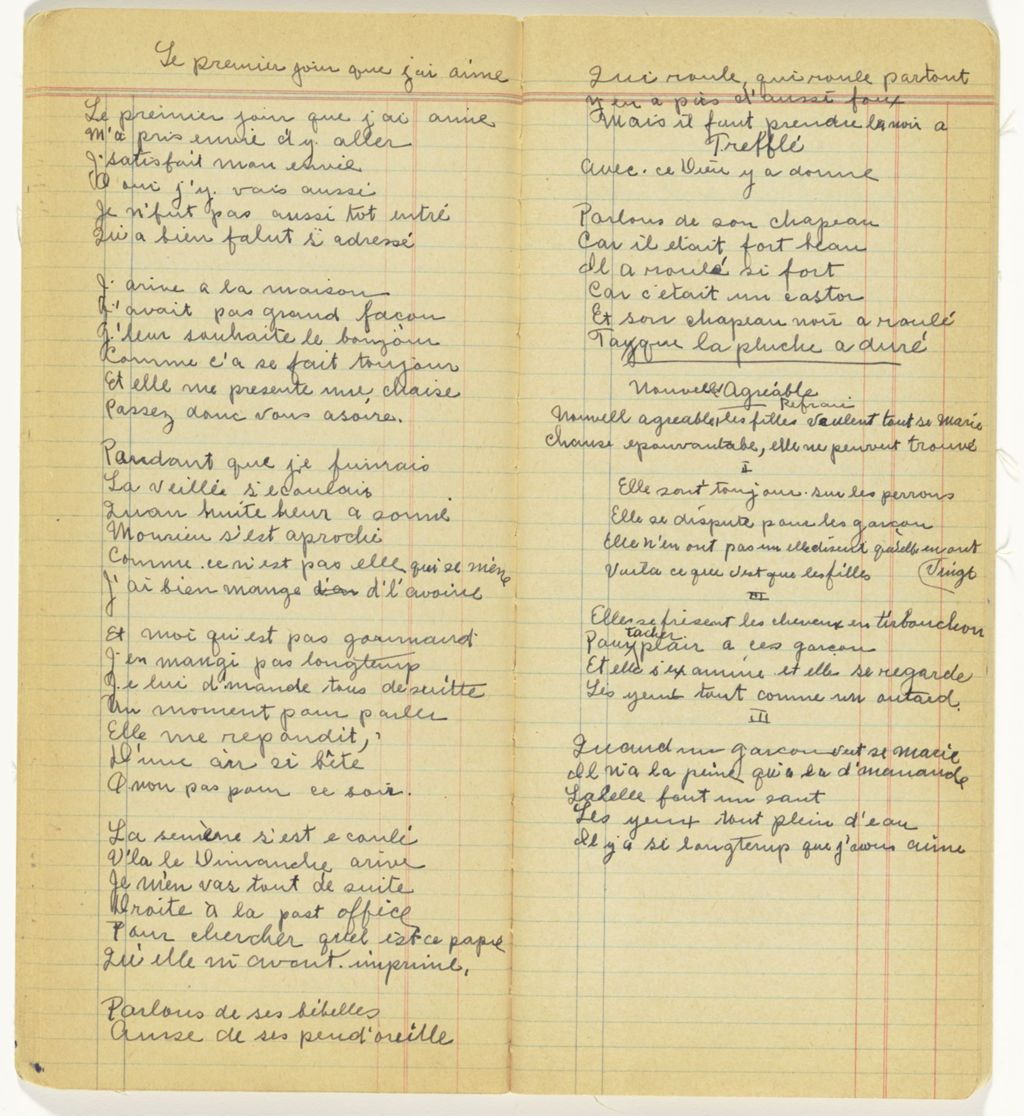 Le premier join que j'ai aime
Le premier join que j'ai aimé
M'a pris envie d'y. aller
J'satisfait mon envie
O oui j'y. vais aussi
Je n'fut pas aussi tot entré
Qui a bien falut s'adressé
J'arive a la maison
Y'avait pas grand facon
J.'leur souhaite le bonjour
Comme c'a se fait toujour
Et elle me presente une chaise
Passez donc vous asoire.
Pandant que je fumais
La veillée s'ecoulais
Quan huite heur a sonné
Monsieu s'est aproché
Comme. ce n'est pas elle qui se mène
J'ai bien mangé d'l'avoine
Et moi qui est pas gourmand
J'en mangi pas longtemp
Je lui d'mande tous de suitte
Un moment pour parler
Elle me repondit,
D'une air si bête
O non pas pour ce soir.
La semène s'est ecoulé
V'la le Dimanche arivé
Je m'en vas tout de suite
Droite à la post office
Pour chercher quel est ce papié
Qu'elle m'avait. imprimé,
Parlons de ses bébelles
Ausse de ses pend'oreille
Qui roule, qui roule partout
Y en a pas d'aussi foux
Mais il faut prendre le noir a
Trefflé
Avec. ce Dieu y a donne
Parlons de son chapeau
Car il etait fort beau
Il a roulé si fort
Car c'etait un castor
Et son chapeau noir a roulé
Tanque la pluche a duré
Nouvelle Agréable
Refrain
Nouvell agreable, les filles veulent tout se Marié
Chause epouvantabe, elle ne peuvent trouvé
I
Elle sont toujour. sur les perrons
Elle se dispute pour les garçon
Elle n'en ont pas un elle disent qu'elle en ont
Voila ce que c'est que les filles (Vingt
II
Elles se frisent les cheveux en tirbouchon
Pour tacher plair a ces garçon
Et elle s'examine et elle se regarde
Les yeux tout comme un outard.
III
Quand un garçon veut se marié
Il n'a la peine qu'a la d'mandé
La belle fait un saut
Les yeux tout plein d'eau
Il y a si longtemp que j'vous aime